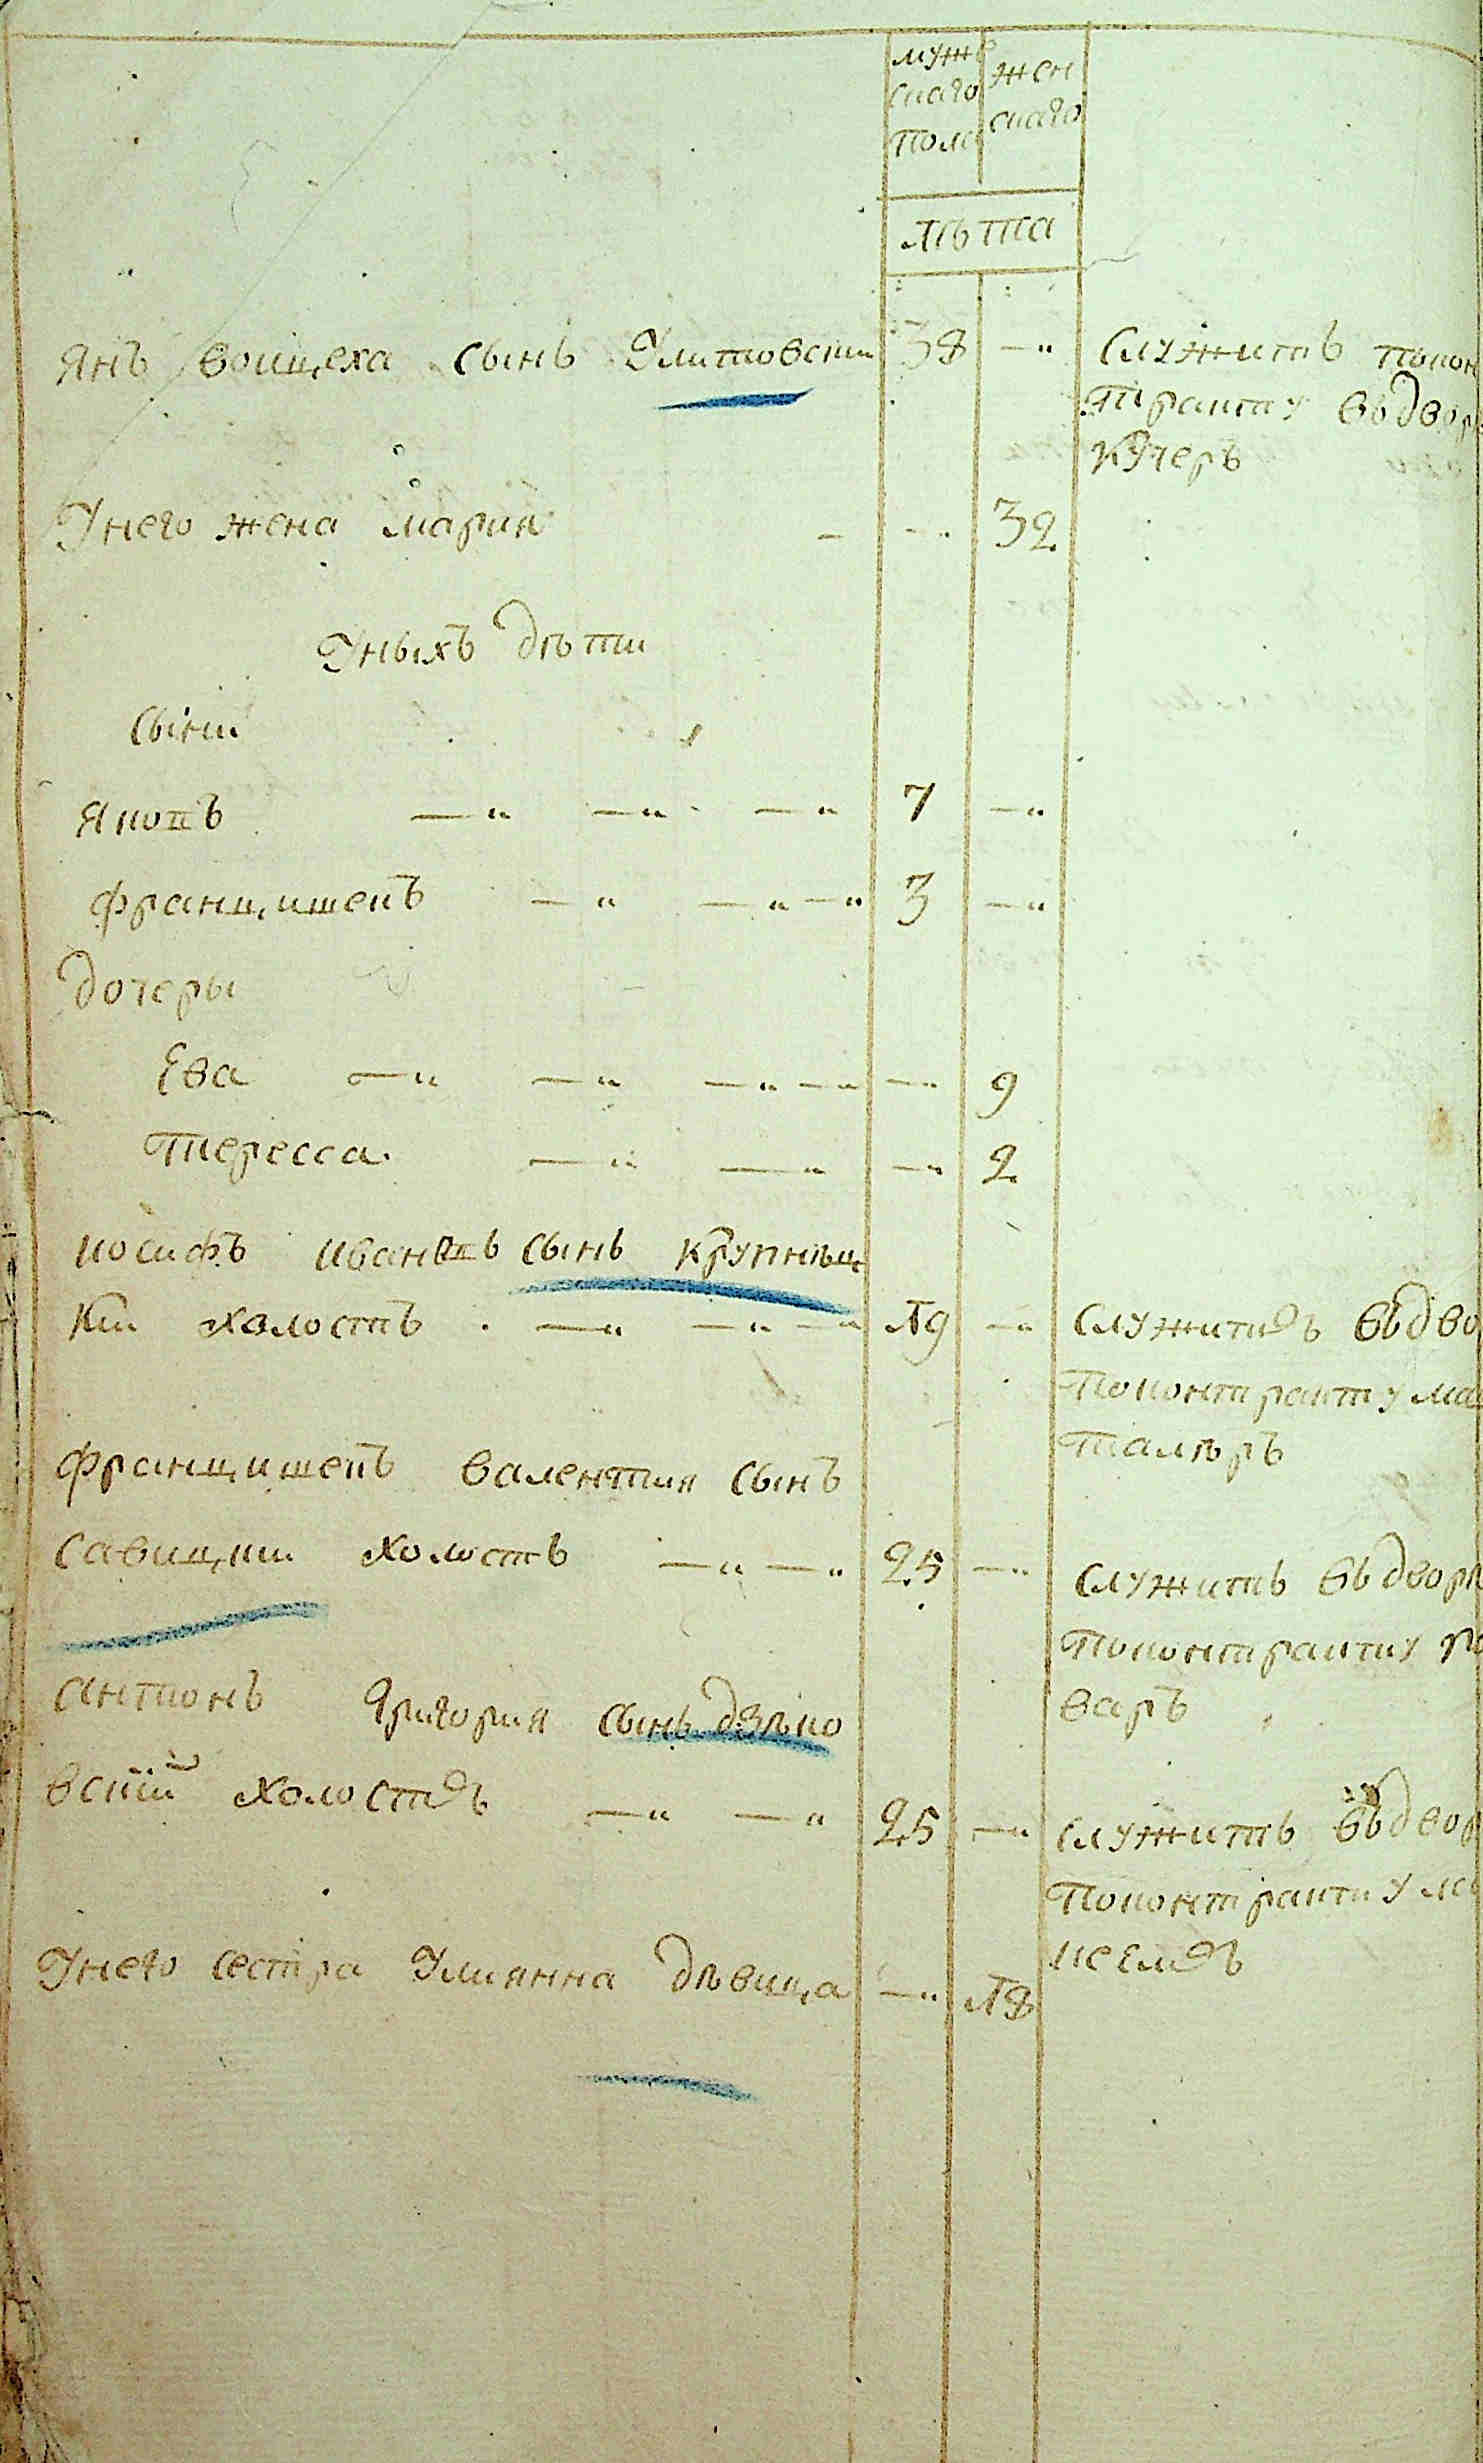 мужескаго пола
женскаго
лѣта
Янъ Войцеха сынъ Улитовски 38 —
служитъ по кон
тракту въ двор
кучеръ
У него жена Мария — — 32
У ныхъ дѣти
сыни
Якопъ — — — 7 —
Францишекъ — — — 3 —
дочеры
Ева — — — — — 9
Тересса — — — 2
Иосифъ сынъ Крупнѣц
ки холостъ — — — 19 —
служитъ въ дво
по контракту
Францишекъ Валентия сынъ
Савицки холостъ — — 25 —
служитъ въ дворѣ
по контракту
варъ
Антонъ Григория сынъ Дзѣко
вский холостъ — — 25 —
служитъ въ двор
по контракту
У него сестра Улиянна дѣвица — 18